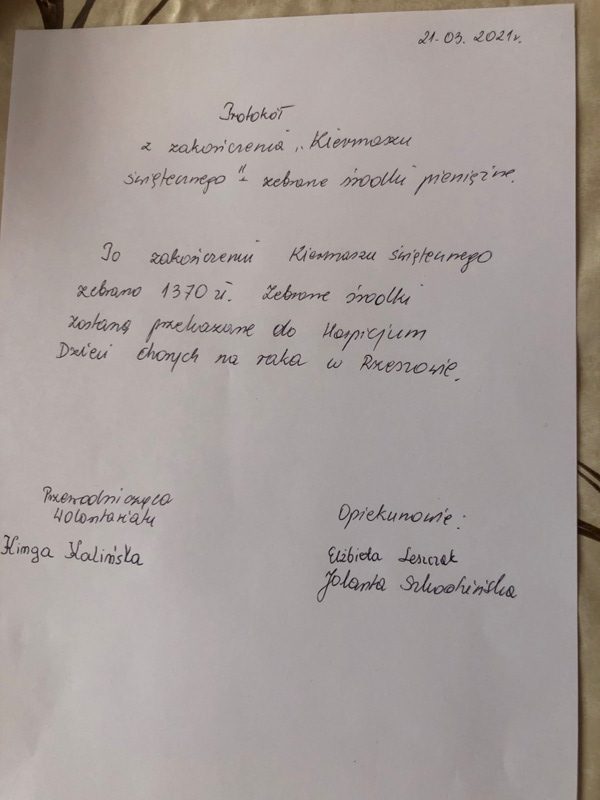 21-03. 2021r.
Protokół
z zakończenia „Kiermaszu
świętecznego" - zebrane środki pieniężne.
Po zakończeniu Kiermaszu świętecznego
zebrano 1370 zł. Zebrane środki
zostaną przekazane do Hospicjum
Dzieci chorych na raka w Rzeszowie.
Przewodnicząca
Wolontariatu
Kinga Kalińska
Opiekunowie:
Elżbieta Leszczak
Jolanta Szkodzińska